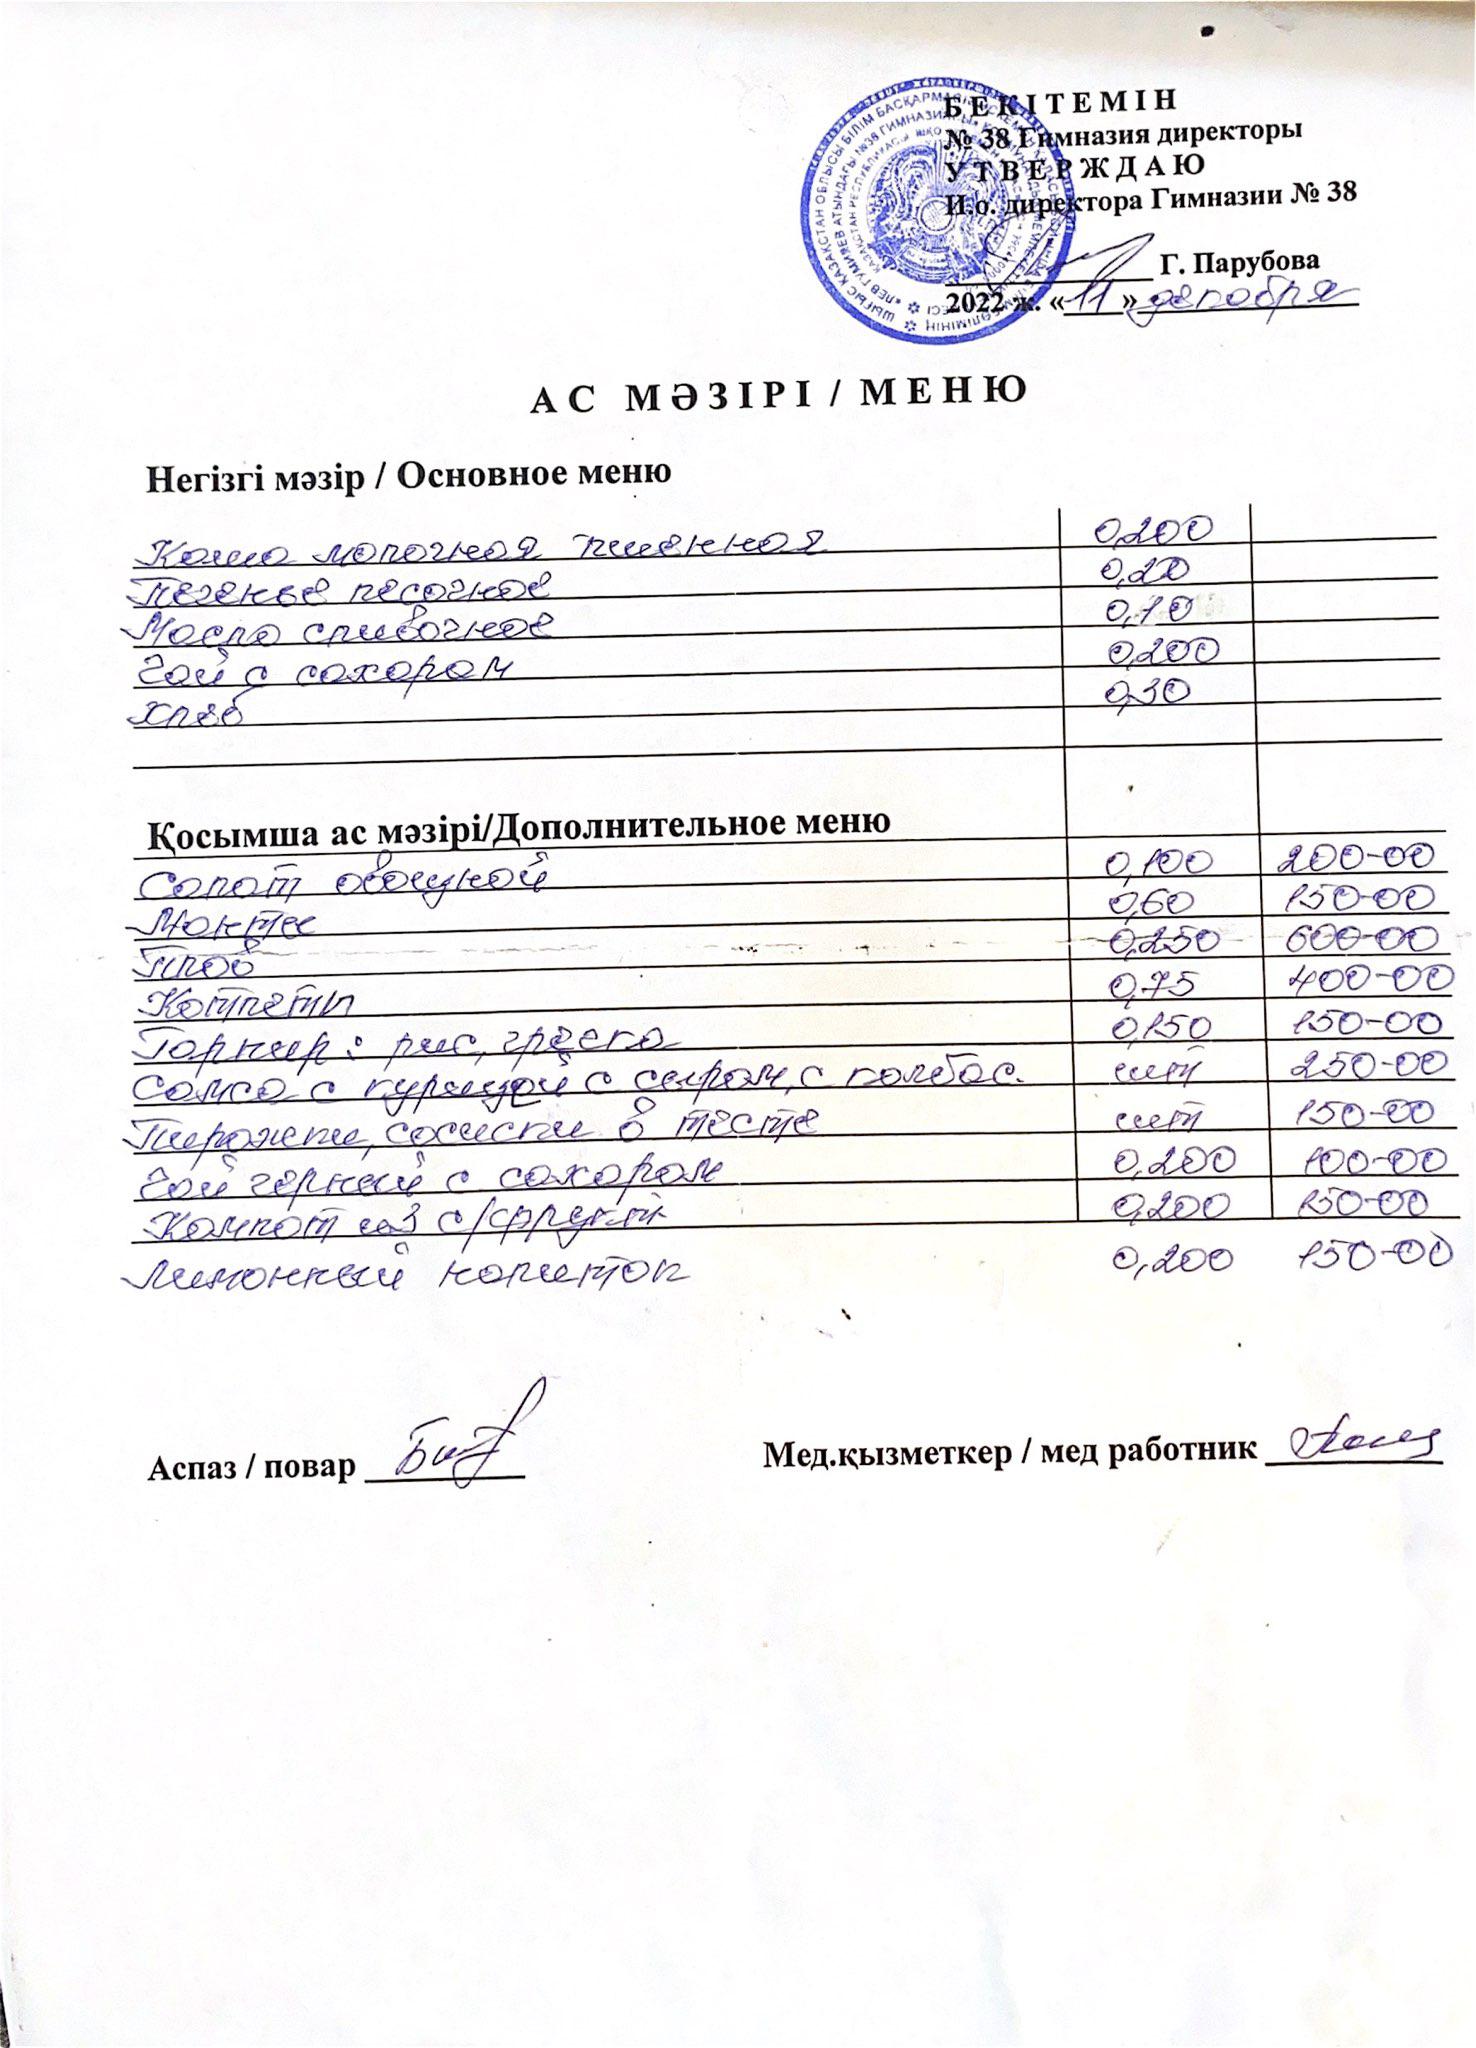 БЕКІТЕМІН
№ 38 Гимназия директоры
УТВЕРЖДАЮ
И.о. директора Гимназии № 38
Г. Парубова
2022 ж. «11» декабря
АС МӘЗІРІ / МЕНЮ
Негізгі мәзір / Основное меню
Каша молочная пшенная 0,200
Печенье песочное 0,20
Масло сливочное 0,10
Чай с сахаром 0,200
Хлеб 0,30
Қосымша ас мәзірі/Дополнительное меню
Салат овощной 0,100 200-00
Манты 0,60 150-00
Плов 0,250 600-00
Котлеты 0,75 400-00
Гарнир: рис, гречка 0,150 150-00
Самса с курицей с сыром, с колбас. шт 250-00
Пирожки, сосиски в тесте шт 150-00
Чай черный с сахаром 0,200 100-00
Компот из с/фрукт 0,200 150-00
Лимонный напиток 0,200 150-00
Аспаз / повар
Мед.қызметкер / мед работник